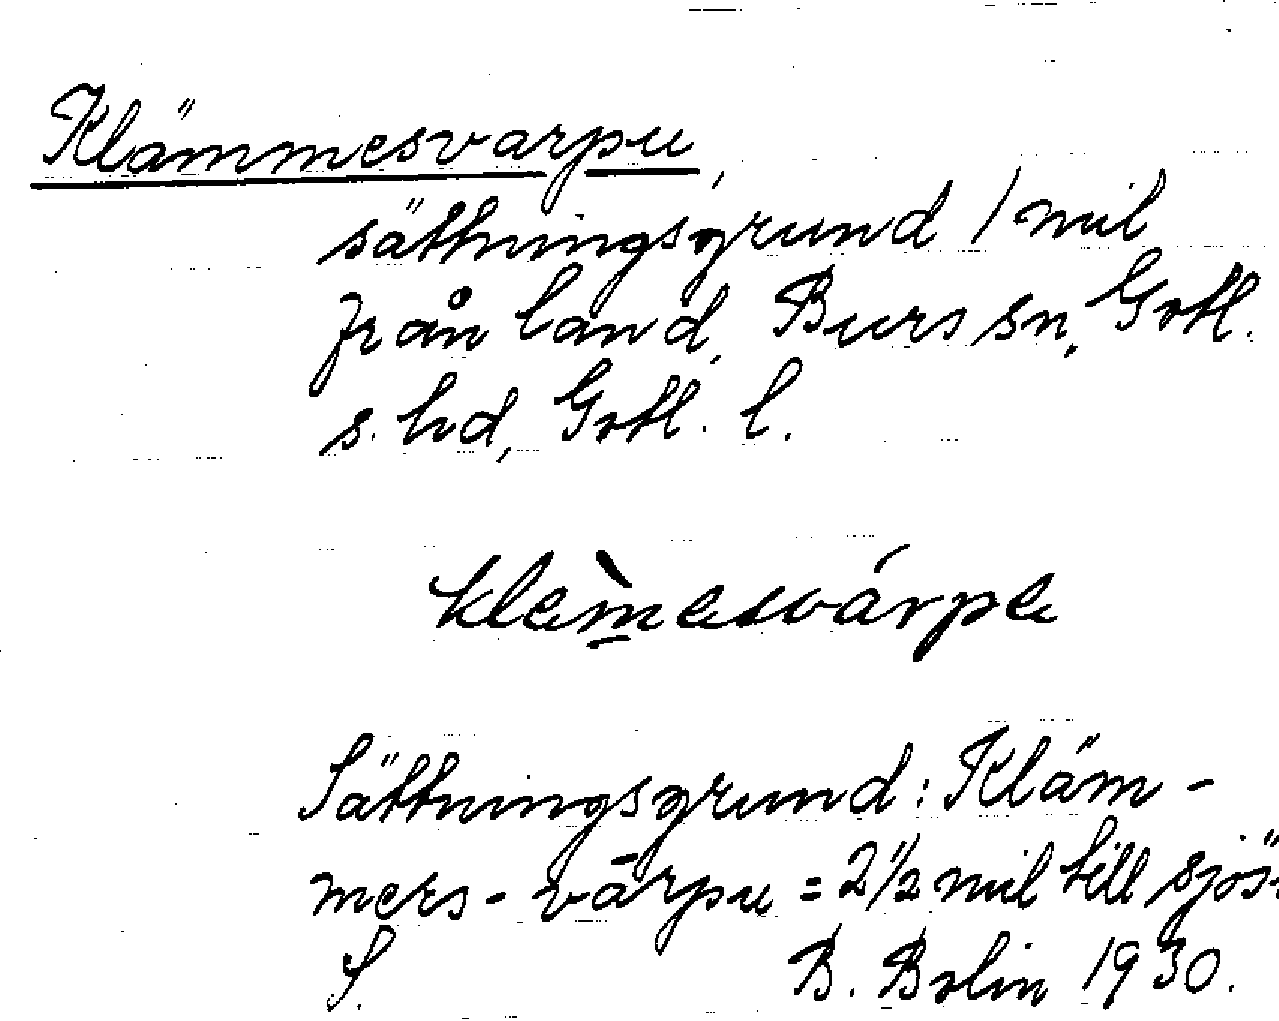 Klämmesvarpu,
sättningsgrund 1 mil
från land, Burs sn, Gotl.
s. hd, Gotl. l.
klemesvárpe
Sättningsgrund: Kläm-
mers-varpu = 2 1/2 mil till sjöss
S. B. Bolin 1930.